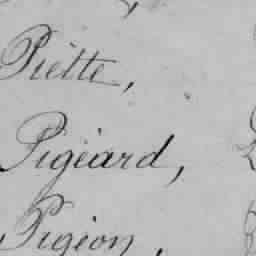 Piette,
Pigeard,
Pigeon,